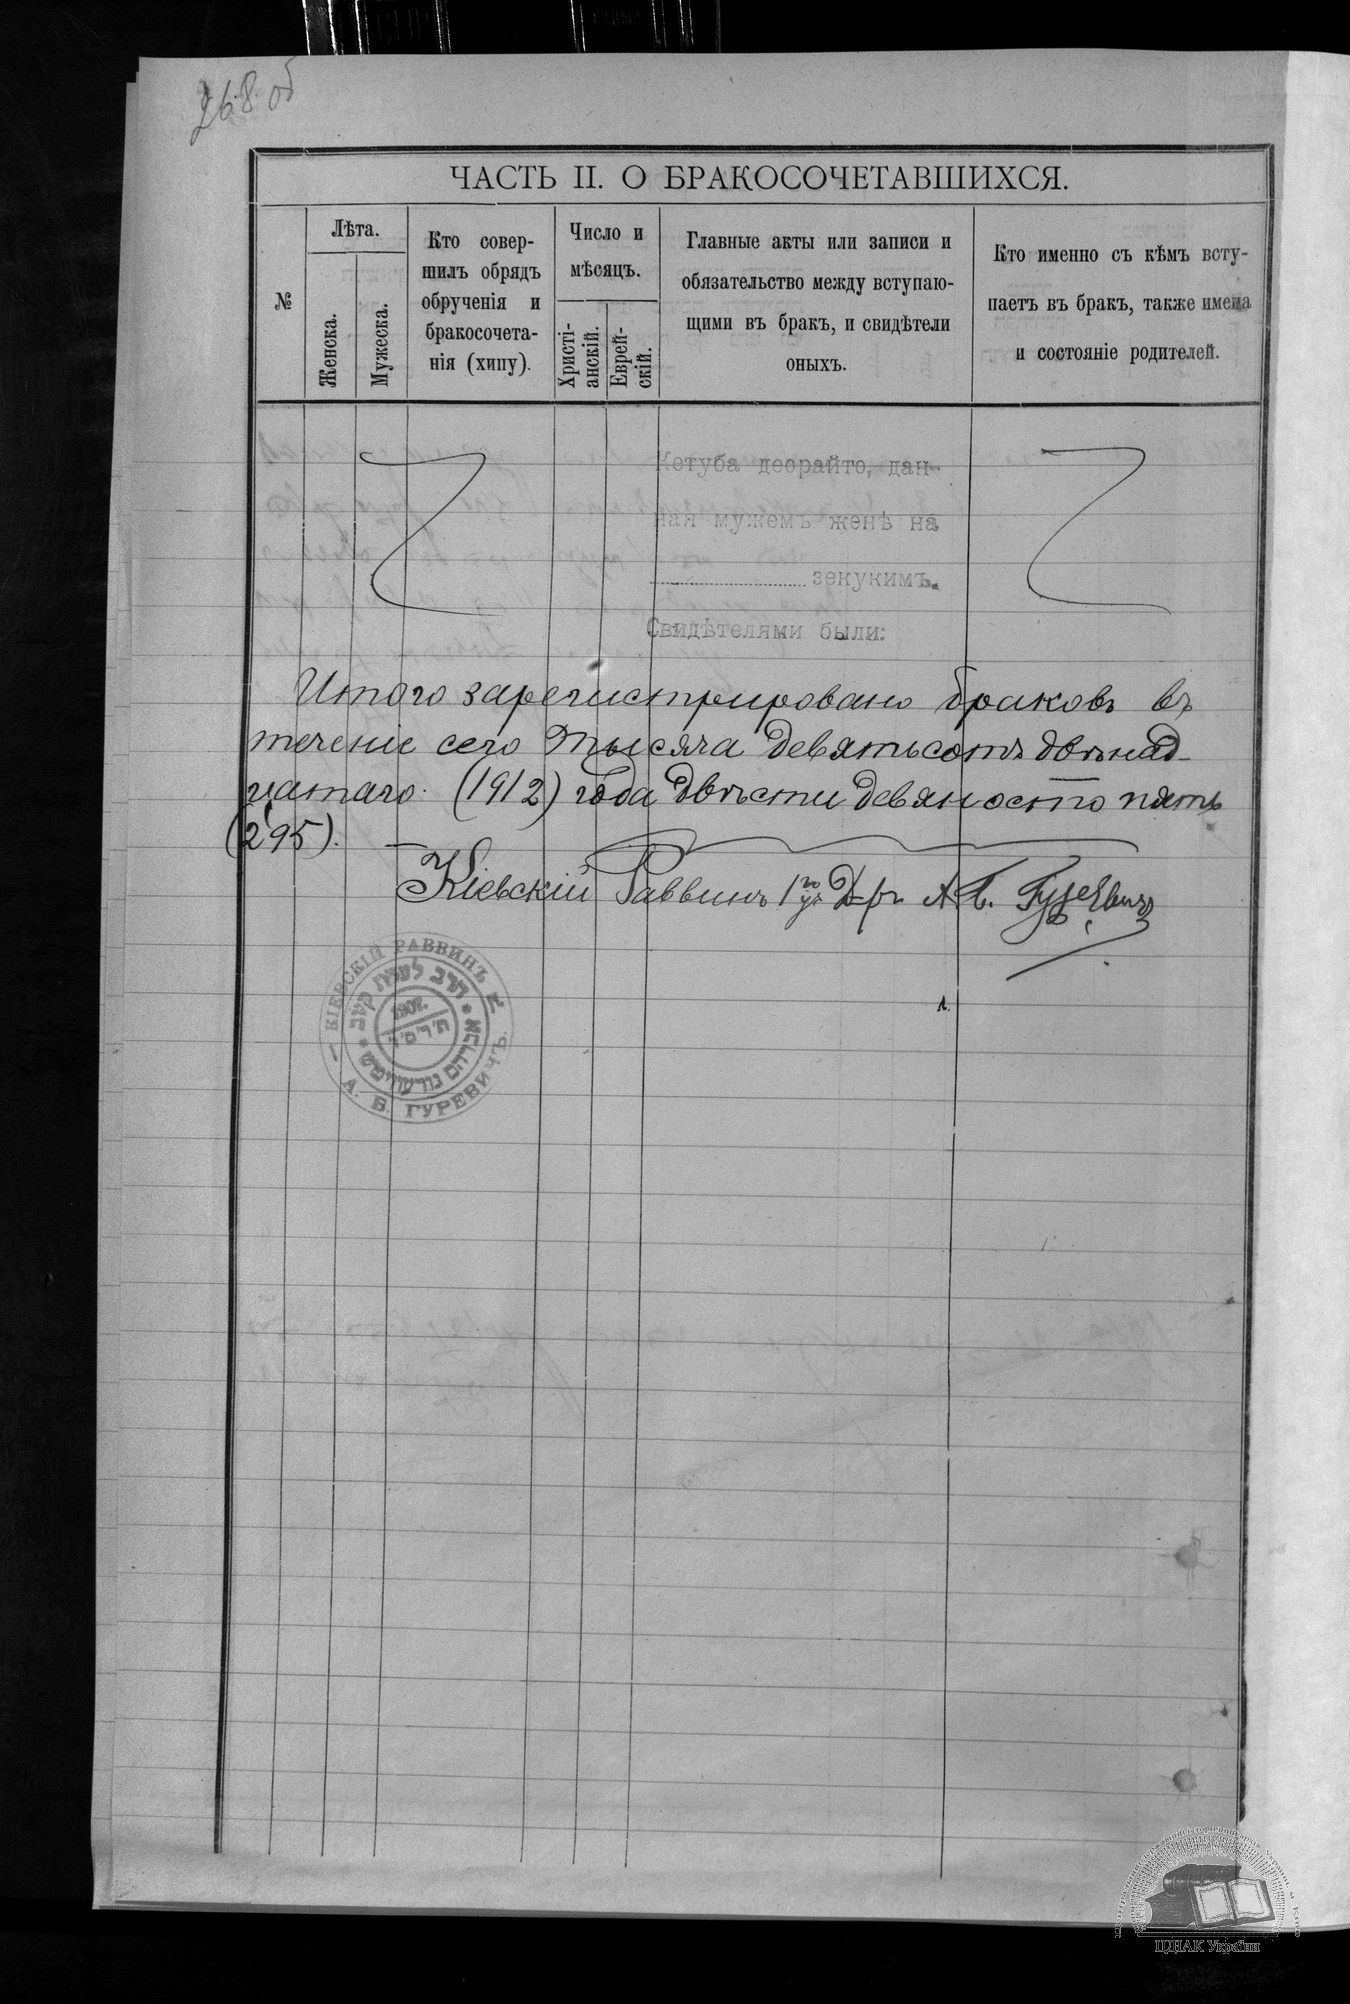 268 об
ЧАСТЬ II. О БРАКОСОЧЕТАВШИХСЯ.
№
Лѣта.
Женска.
Мужеска.
Кто совер-
шилъ обрядъ
обрученія и
бракосочета-
нія (хипу).
Число и
мѣсяцъ.
Христі-
анскій.
Еврей-
скій.
Главные акты или записи и
обязательство между вступаю-
щими въ бракъ, и свидѣтели
оныхъ.
Кто именно съ кѣмъ всту-
паетъ въ бракъ, также имена
и состояніе родителей.
Кетуба деорайто, дан-
ная мужемъ женѣ на
зекукимъ.
Свидѣтелями были:
Итого зарегистрировано браковъ въ
теченіе сего тысяча девятьсотъ двѣнад-
цатаго (1912) года двѣсти девяносто пять
(295).
Кіевскій Раввинъ 1го уч. Д-ръ А. Б. Гуревичъ
КІЕВСКІЙ РАВВИНЪ
А. Б. ГУРЕВИЧЪ.
ЦДІАК України